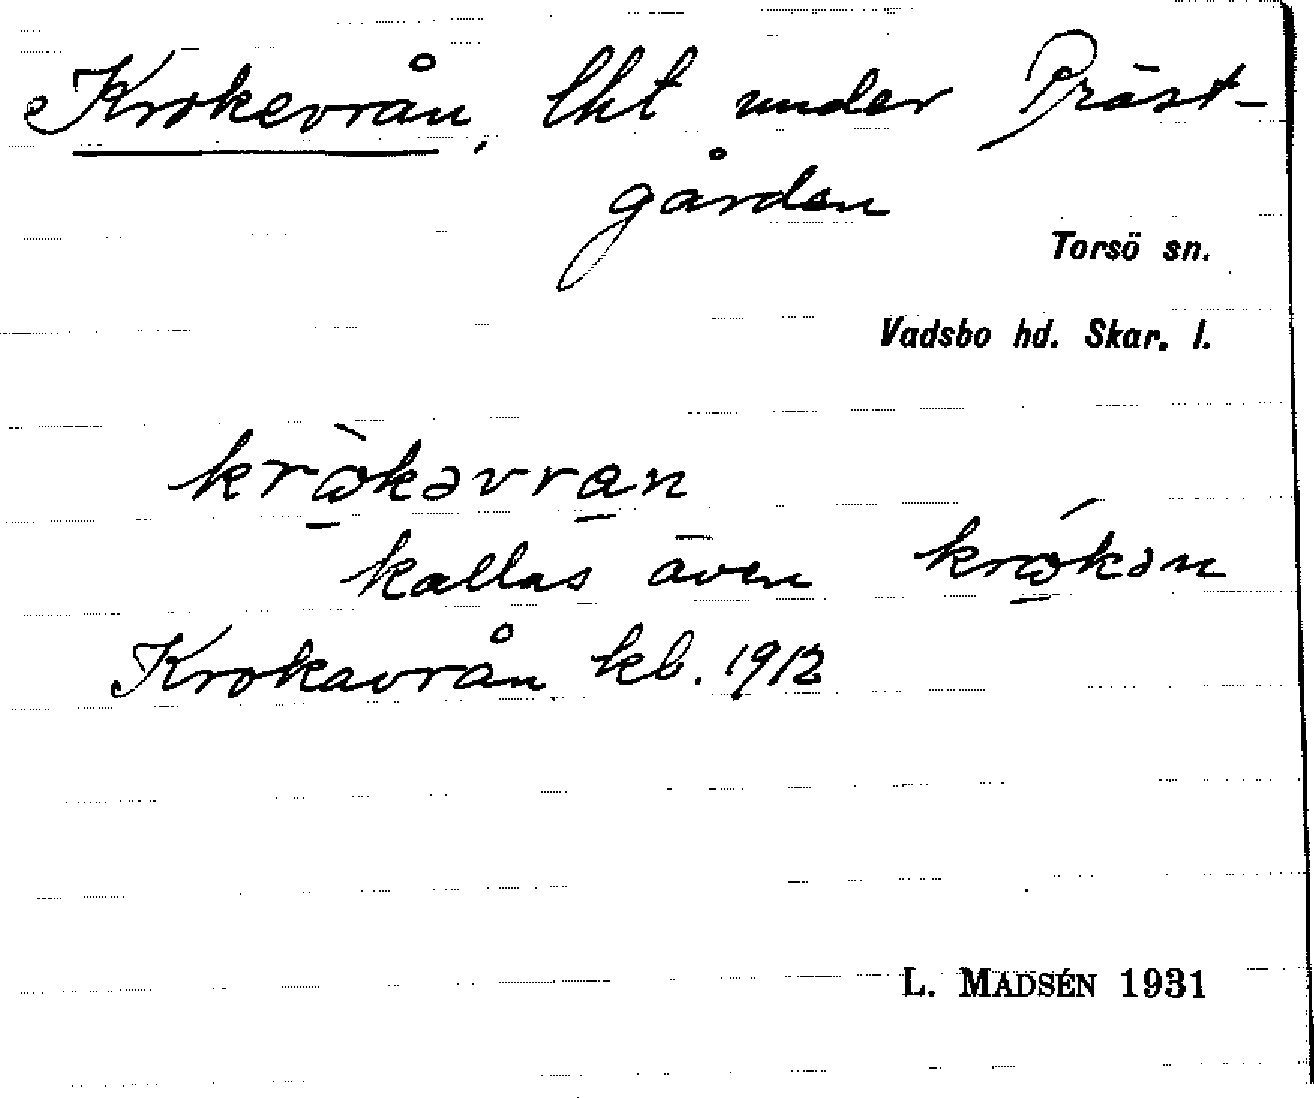 Krokevrån, lht under Präst-
gården
Torsö sn.
Vadsbo hd. Skar. l.
krὼ̱kəvra̱n
kallas även krώ̱kən
Krokavrån kb. 1912
L. MADSÉN 1931